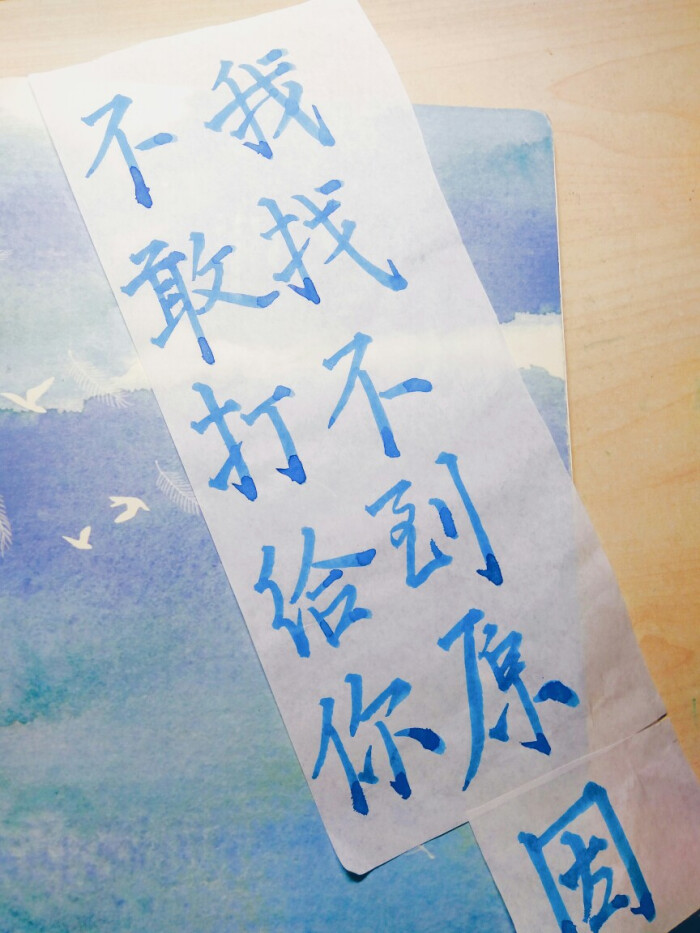 不敢打给你
我找不到原因